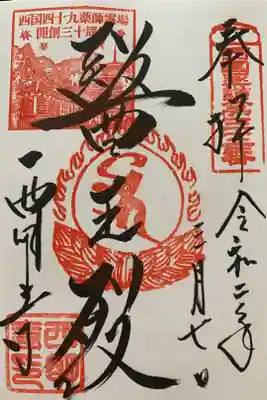 西国四十九薬師霊場
開創三十周年
奉拝 令和二年
三月七日
醫王殿
西明寺